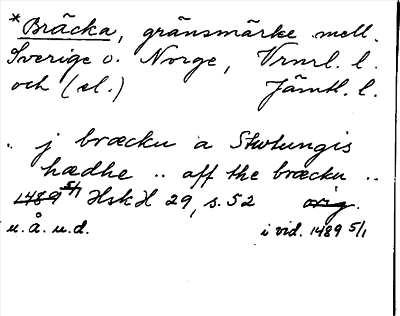 *Bräcka, gränsmärke mell.
Sverige o. Norge, Vrml. l.
och (el.) Jämtl. l.
.. j bræcku a Stwtungis
hædhe .. aff the bræcku ..
1489 5/1 HskH 29, s. 52 orig.
u.å. u.d. i vid. 1489 5/1